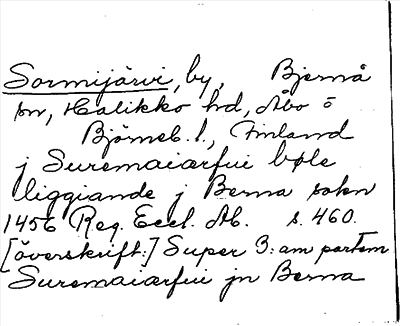 Sormijärvi, by, Bjernå
sn, Halikko hd, Åbo o
Björneb. l., Finland
j Suremaiærfui bøle
liggiande j Berna sokn
1456 Reg. Eccl. Ab. s. 460.
[överskrift:] Super 3:am partem
Suremaiærfui jn Berna